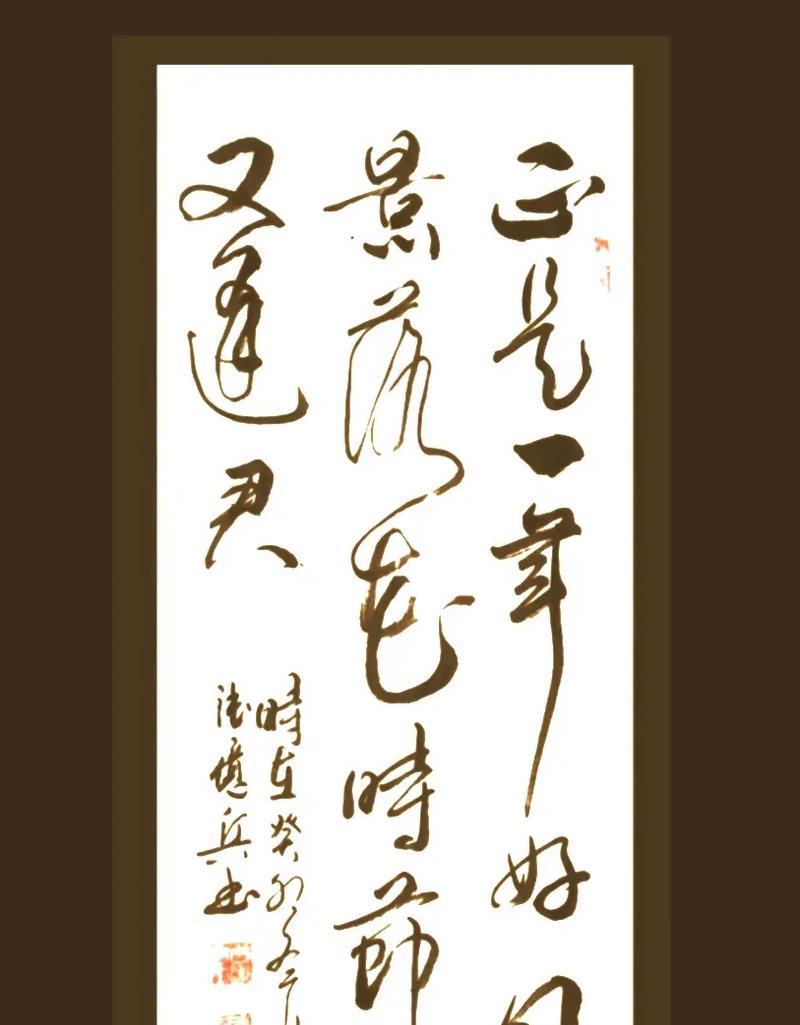 正是一年好
景落花時節
又逢君
時在癸卯冬
億兵书